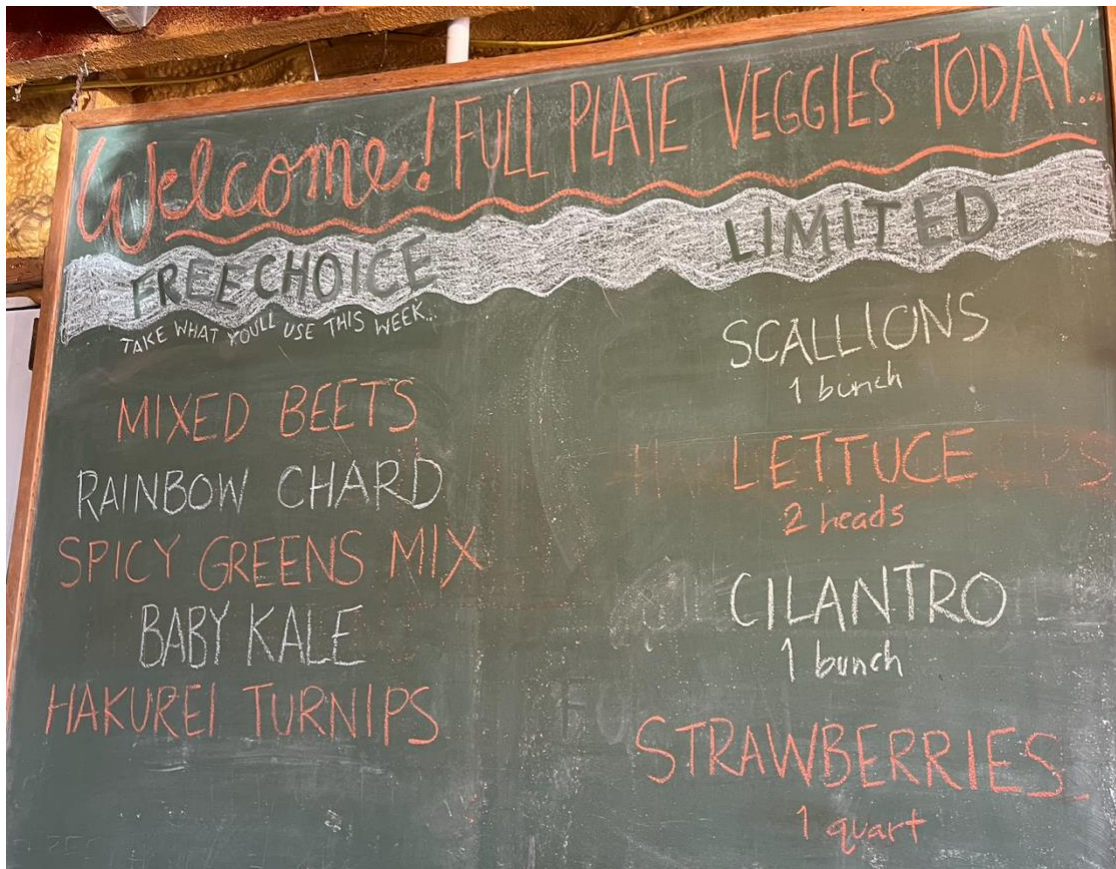 Welcome! FULL PLATE VEGGIES TODAY...
FREE CHOICE
TAKE WHAT YOULL USE THIS WEEK...
MIXED BEETS
RAINBOW CHARD
SPICY GREENS MIX
BABY KALE
HAKUREI TURNIPS
LIMITED
SCALLIONS
1 bunch
LETTUCE
2 heads
CILANTRO
1 bunch
STRAWBERRIES
1 quart